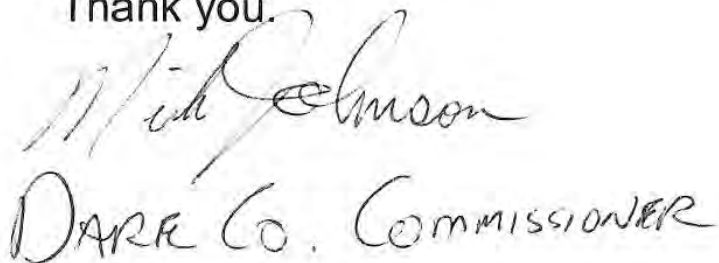 Thank you.
Johnson
DARE CO. COMMISSIONER